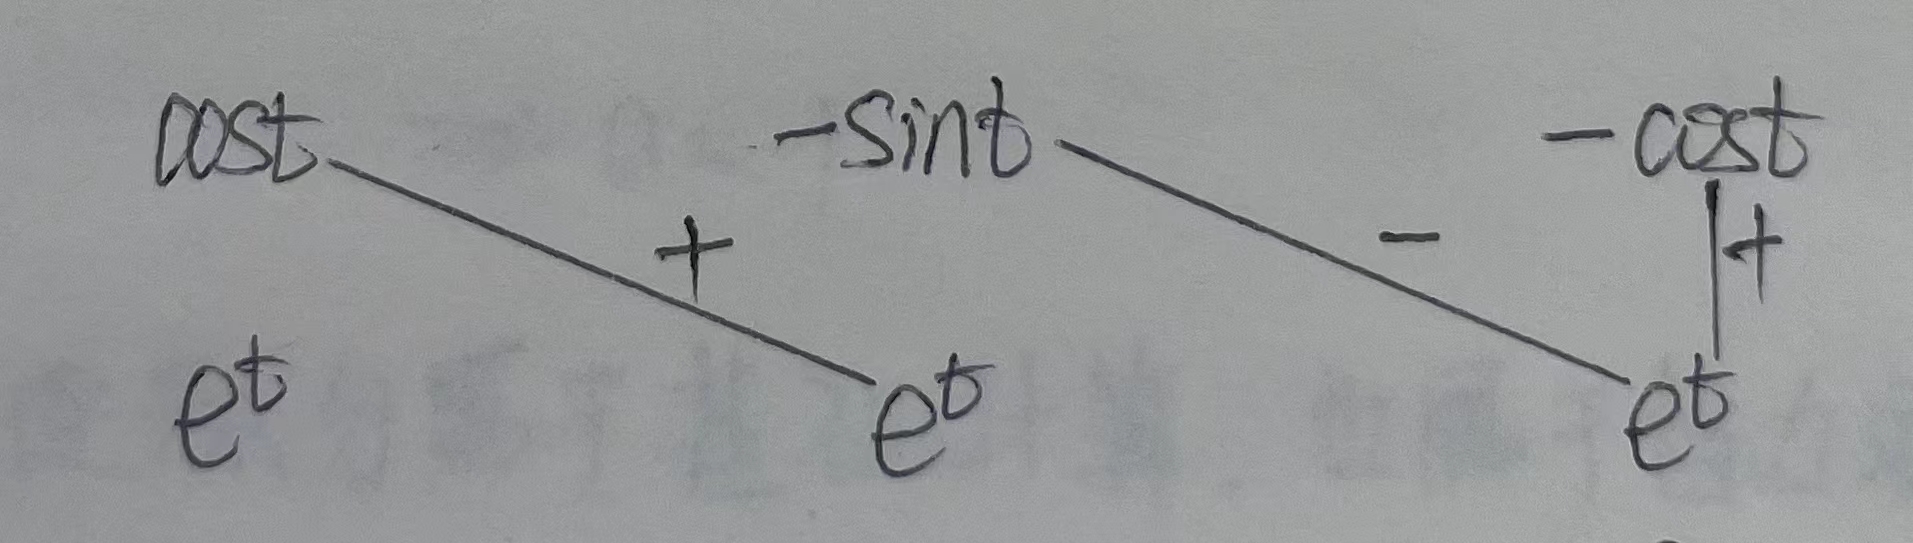 cost -sint -cost
+ - +
e^t e^t e^t